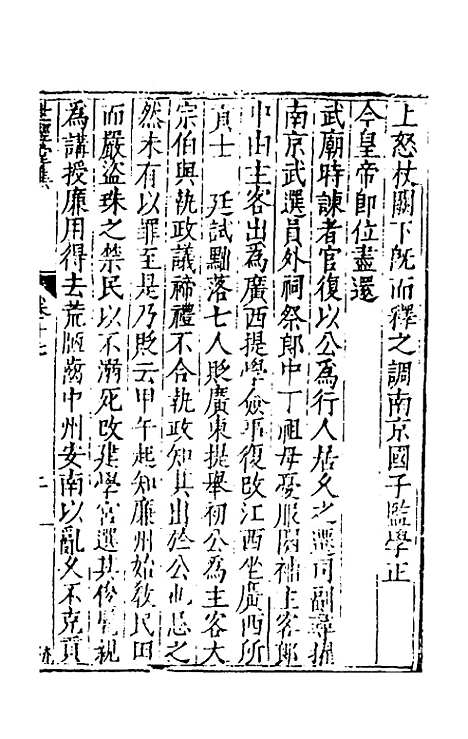 上怒杖闕下旣而釋之調南京國子監學正
今皇帝即位盡還
武廟時諫者官復以公為行人居久之遷司副尋擢
南京武選員外祠祭郎中丁祖母憂服闋補主客郎
中由主客出為廣西提學僉事復改江西坐廣西所
貢士 廷試黜落七人貶廣東提舉初公為主客大
宗伯與執政議禘禮不合執政知其出於公也忌之
然未有以罪至是乃貶云甲午起知廉州始敎民田
而嚴盜珠之禁民以不溺死改建學宮選其俊 親
為講授廉用得去荒陋齒中州安南以亂久不克貢
卷十七